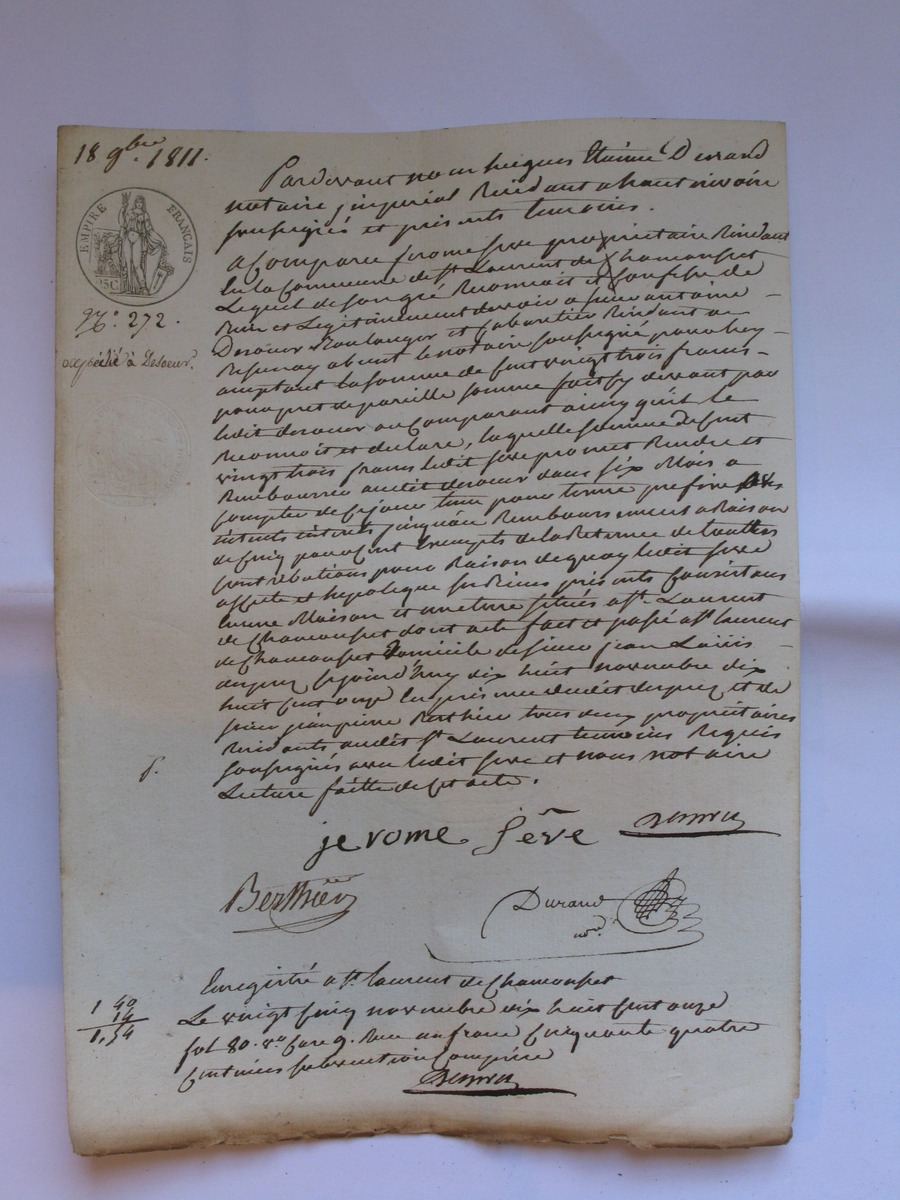 18 9bre 1811.
EMPIRE FRANÇAIS
25C
N°. 272.
expédié à Desoeur.
Pardevant nous hugues Etienne Durand
notaire imperial Residant a haut rivoire
soussignés et présents temoins.
a Comparu jerome seve proprietaire Residant
en la Commune de st Laurent de Chamousset
Lequel de son gré Reconnoit et Confesse de
bien et Legitimement devoir a sieur antoine
Desoeur Boulanger et Cabaretier Residant a
absent le notaire soussigné pour luy
acceptant la somme de Cent vingt trois francs
pour pret de pareille somme fait cy devant par
ledit desoeur au Comparant ainsy qu'il le
reconnoit et declare, laquelle somme de Cent
vingt trois francs ledit seve promet Rendre et
Rembourser audit desoeur dans six Mois a
compter de Ce jour pour terme prefix
interets jusquau Remboursement a Raison
de Cinq pour Cent Exempts de la Retenue de touttes
Contributions pour Raison de quoy ledit seve
affecte et hipoteque ses Biens présents Consistans
en une Maison et une terre situés a st. Laurent
de Chamousset dont acte fait et passé a st laurent
de Chamousset domicile de sieur jean Louis
dupuy Cejourd'huy dix huit novembre dix
huit Cent onze En présence dudit dupuy et de
sieur jean pierre Berthier tous deux proprietaires
Residants audit st Laurent temoins Requis
soussignés avec ledit seve et nous notaire
Lecture faitte de Cet acte.
jerome sêve
Berthier
Durand
nore.
Enregistré a st. laurent de Chamousset
Le vingt Cinq novembre dix huit Cent onze
fol 80. vo Case 9. Reçu un franc Cinquante quatre
Centimes subvention Comprise
1 40
14
1,54